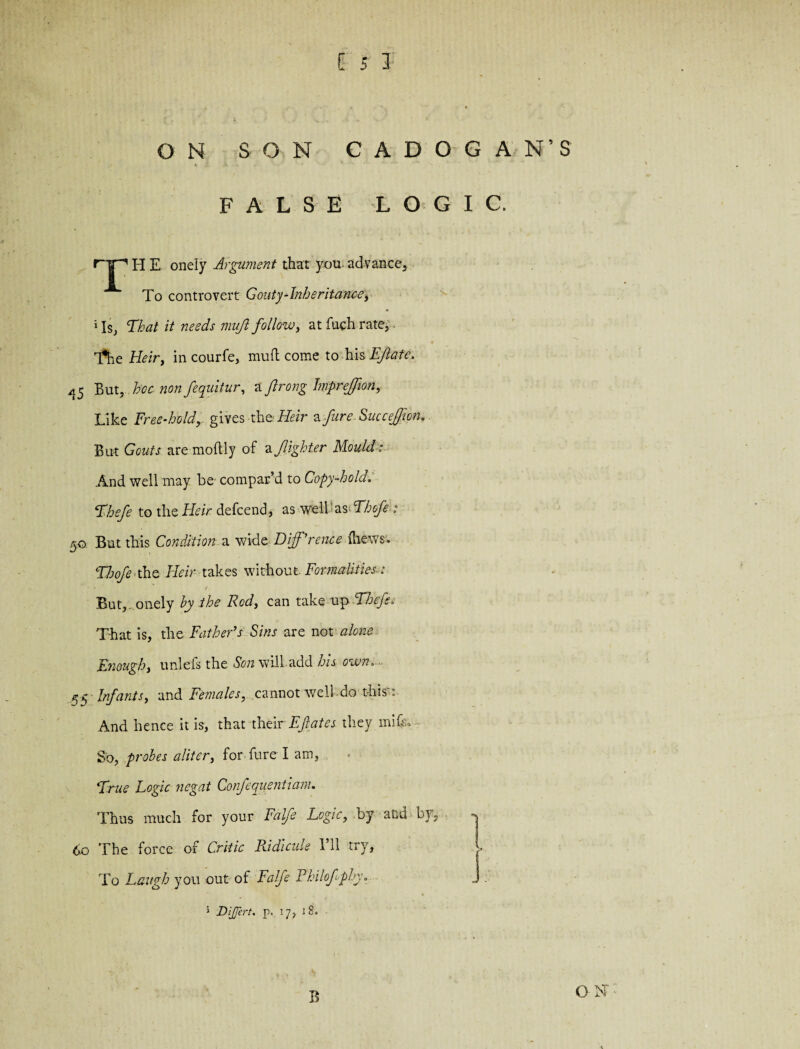 [ 5 ]
ON SON CADOGAN'S
FALSE LOGIC.
THE onely Argument that you advance,
To controvert Gouty-Inheritance,
¹ Is, That it needs muſt follow, at ſuch rate,
The Heir, in courſe, muſt come to his Eſtate.
45 But, hoc non ſequitur, a ſtrong Impreſſion,
Like Free-hold, gives the Heir a ſure Succeſſion.
But Gouts are moſtly of a ſlighter Mould:
And well may be compar'd to Copy-hold.
Theſe to the Heir deſcend, as well as Thoſe:
50 But this Condition a wide Diff'rence ſhews.
Thoſe the Heir takes without Formalities:
But, onely by the Rod, can take up Theſe.
That is, the Father's Sins are not alone
Enough, unleſs the Son will add his own.
55 Infants, and Females, cannot well do this:
And hence it is, that their Eſtates they miſs.
So, probes aliter, for ſure I am,
True Logic negat Conſequentiam.
Thus much for your Falſe Logic, by and by,
60 The force of Critic Ridicule I'll try,
To Laugh you out of Falſe Philoſophy.
¹ Diſſert. p. 17, 18.
B
ON